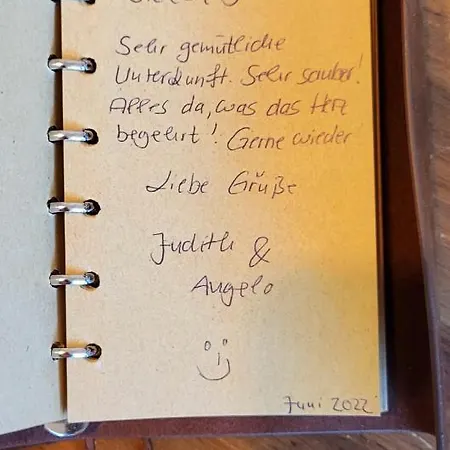 Sehr gemütliche
Unterkunft. Sehr sauber!
Alles da, was das Herz
begehrt! Gerne wieder
Liebe Grüße
Judith &
Angelo
Juni 2022